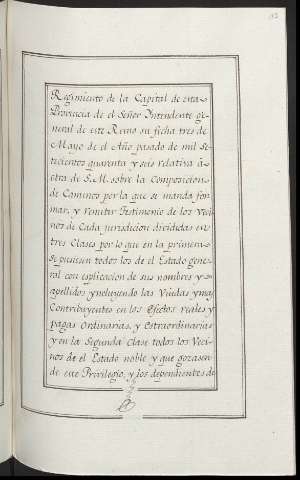 Regimiento de la Capital de esta
Provincia de el Señor Intendente ge-
neral de este Reino su ficha tres de
Mayo de el Año pasado de mil Se-
tecientos quarenta y seis relativa à
otra de S.M. sobre la Composicion
de Caminos por la que se manda for
mar, y remitir Testimonio de los Veci
nos de Cada jurisdicion divididas en
tres Clases por lo que en la primera
se pusiesen todos los de el Estado gene
ral con esplicacion de sus nombres y
apellidos yncluyendo las Viudas y mas
Contribuyentes en los Efectos reales y
pagas Ordinarias, y Estraordinarias
y en la Segunda Clase todos los Veci
nos de el Estado noble y que gozasen
de este Privilegio, y los dependientes de